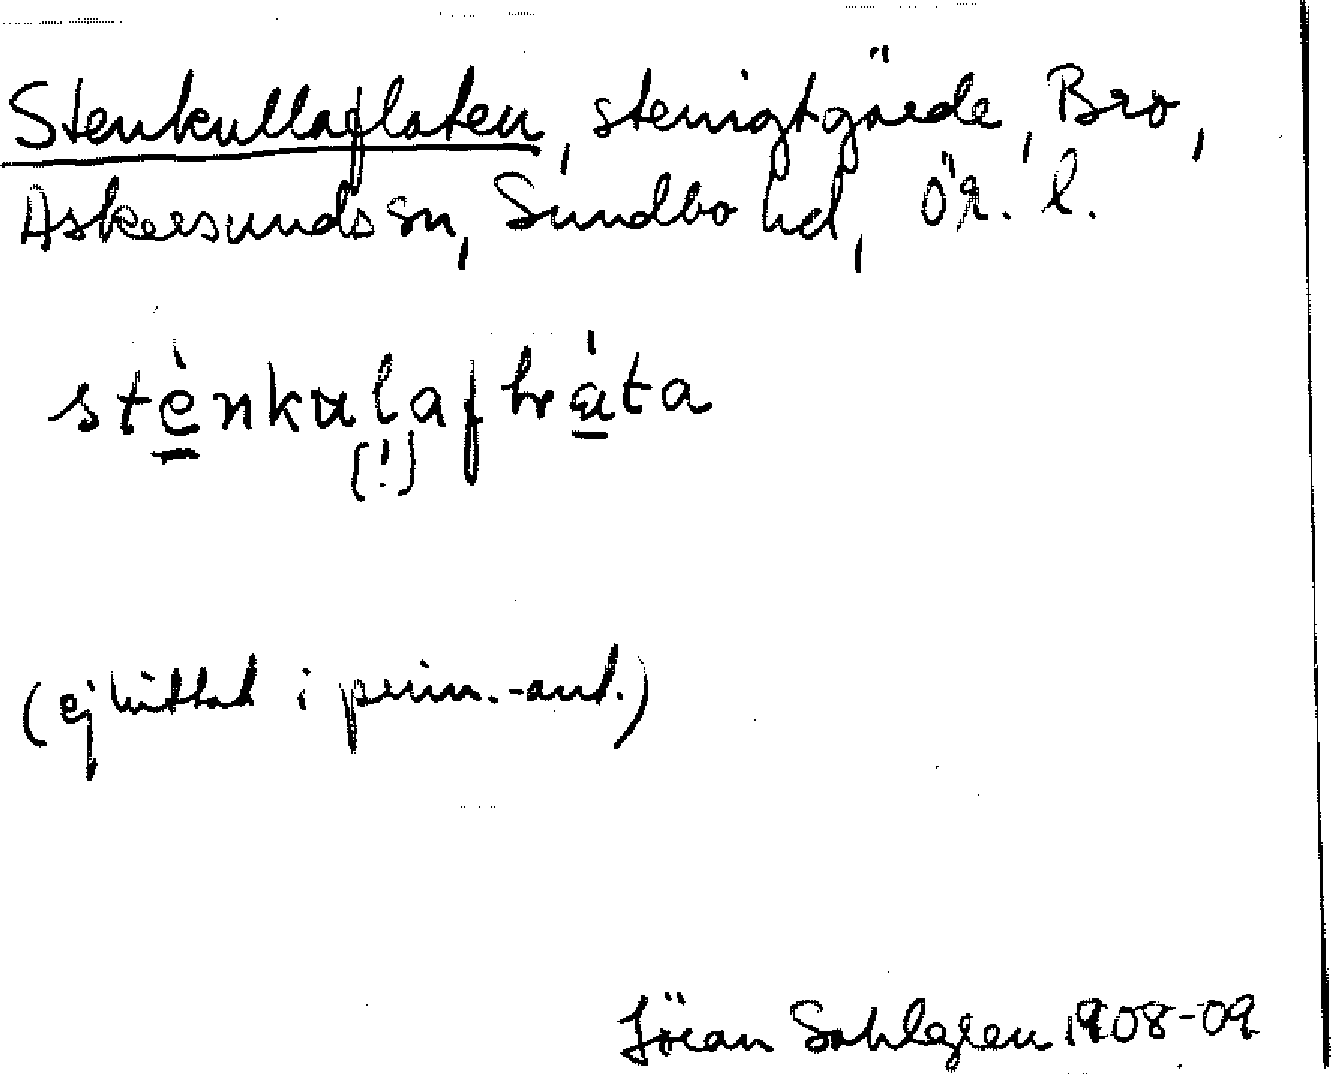 Stenkullaflaten, stenigt gärde, Bro,
Askersunds sn, Sundbo hd, Ör. l.
stènkulaf
(!)
(ej hittad i prim.-aut.)
Jöran Sahlgren 1908-09